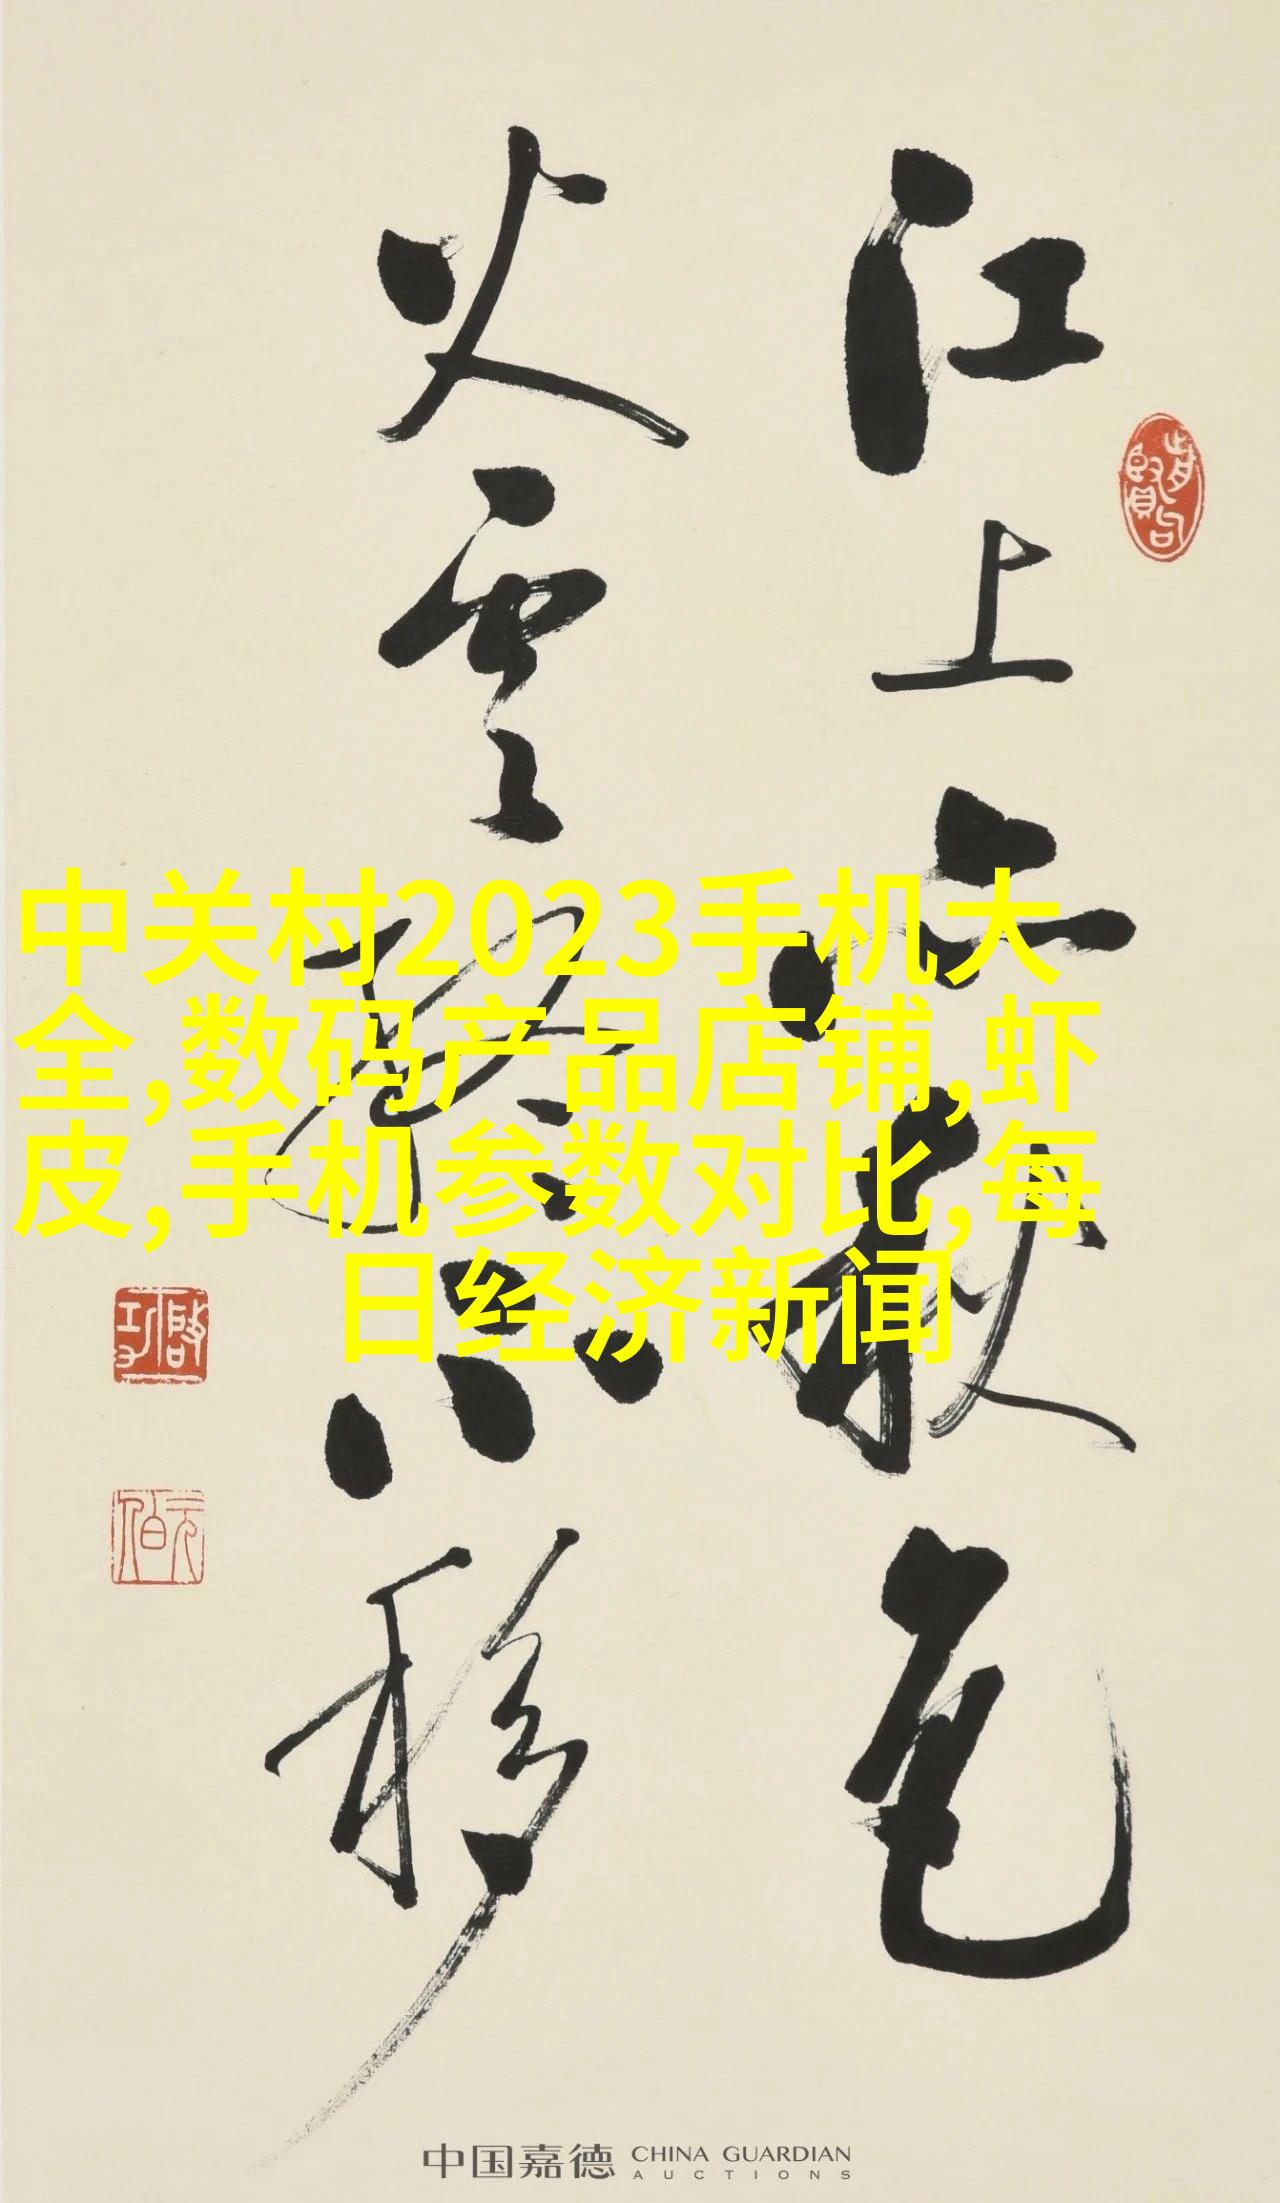 江上亦秋色
火雲終不移
啟功
元白
中关村2023手机大
全,数码产品店铺,虾
皮,手机参数对比,每
日经济新闻
中国嘉德 CHINA GUARDIAN
AUCTIONS